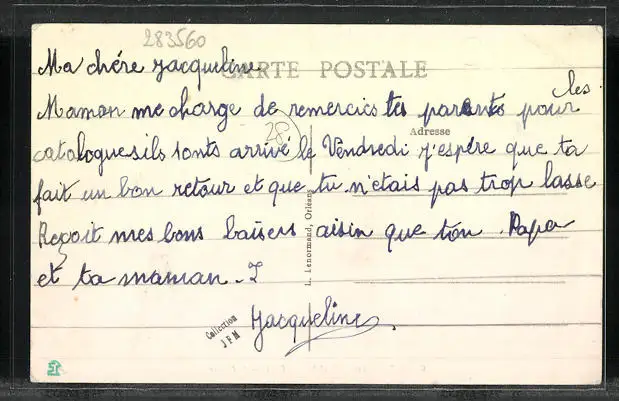 283560
Ma chère Jacqueline
CARTE POSTALE
Maman me charge de remerciés tes parents pour les
28
Adresse
catalogues ils sonts arrivé le Vendredi j'espère que ta
fait un bon retour et que tu n'étais pas trop lasse
Reçoit mes bons baisers aisin que ton Papa
et ta maman. J
Jacqueline.
L. Lenormand, Orléans
Collection
JFM